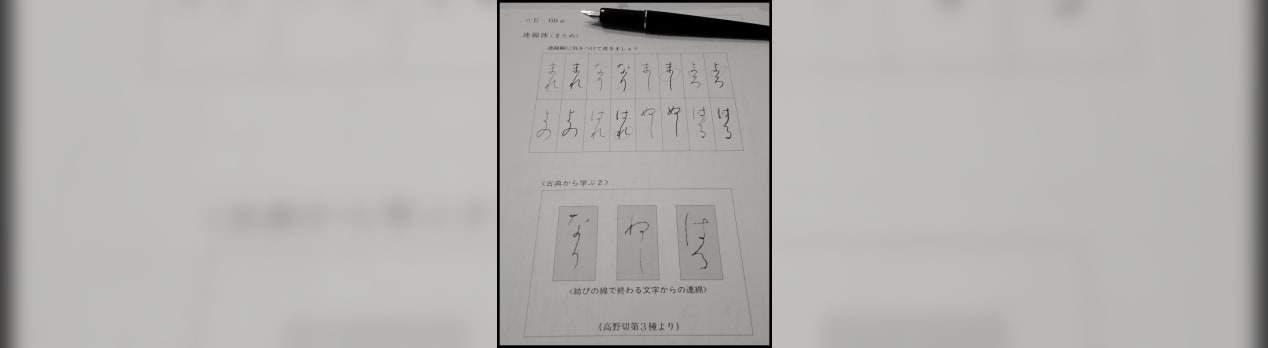 連綿体(まとめ)
連綿線に気をつけて書きましょう
よろ よろ まし まし なり なり まれ まれ
はる はる ぬし ぬし はれ はれ よの よの
<古典から学ぶ2>
はる ねし なり
<結びの線で終わる文字からの連綿>
(高野切第3種より)